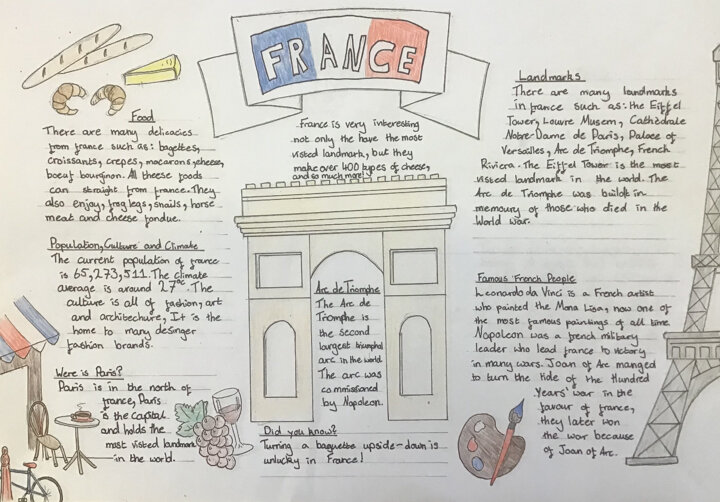 FRANCE
Food
There are many delicacies
from france such as: bagettes,
croissants, crepes, macarons, cheese,
boeuf bourginon. All theese foods
can straight from france. They
also enjoy, frog legs, snails, horse
meat and cheese fondue.
Population, Culture and Climate
The current population of france
is 65,273,511. The climate
average is around 27°c. The
culture is all of fashion, art
and architechure, It is the
home to many desinger
fashion brands.
Were is Paris?
Paris is in the north of
france, Paris
is the capital
and holds the
most visted landmark
in the world.
France is very interesting
not only the have the most
visted landmark, but they
make over 400 types of cheese,
and so much more!
Arc de Triomphe
The Arc de
Triomphe is
the second
largest triumphal
arc in the world
The arc was
commissioned
by Napoleon.
Did you know?
Turning a baguette upside-down is
unlucky in France!
Landmarks
There are many landmarks
in france such as: the Eiffel
Tower, Louvre Musem, Cathédrale
Notre-Dame de Paris, Palace of
Versailles, Arc de Triomphe, French
Riviera. The Eiffel Tower is the most
visted landmark in the world. The
Arc de Triomphe was built in
memoury of those who died in the
World war.
Famous French People
Leonardo da Vinci is a French artist
who painted the Mona Lisa, now one of
the most famous paintings of all time.
Napoleon was a french military
leader who lead france to victory
in many wars. Joan of Arc manged
to turn the tide of the Hundred
Years' war in the
favour of france,
they later won
the war because
of Joan of Arc.